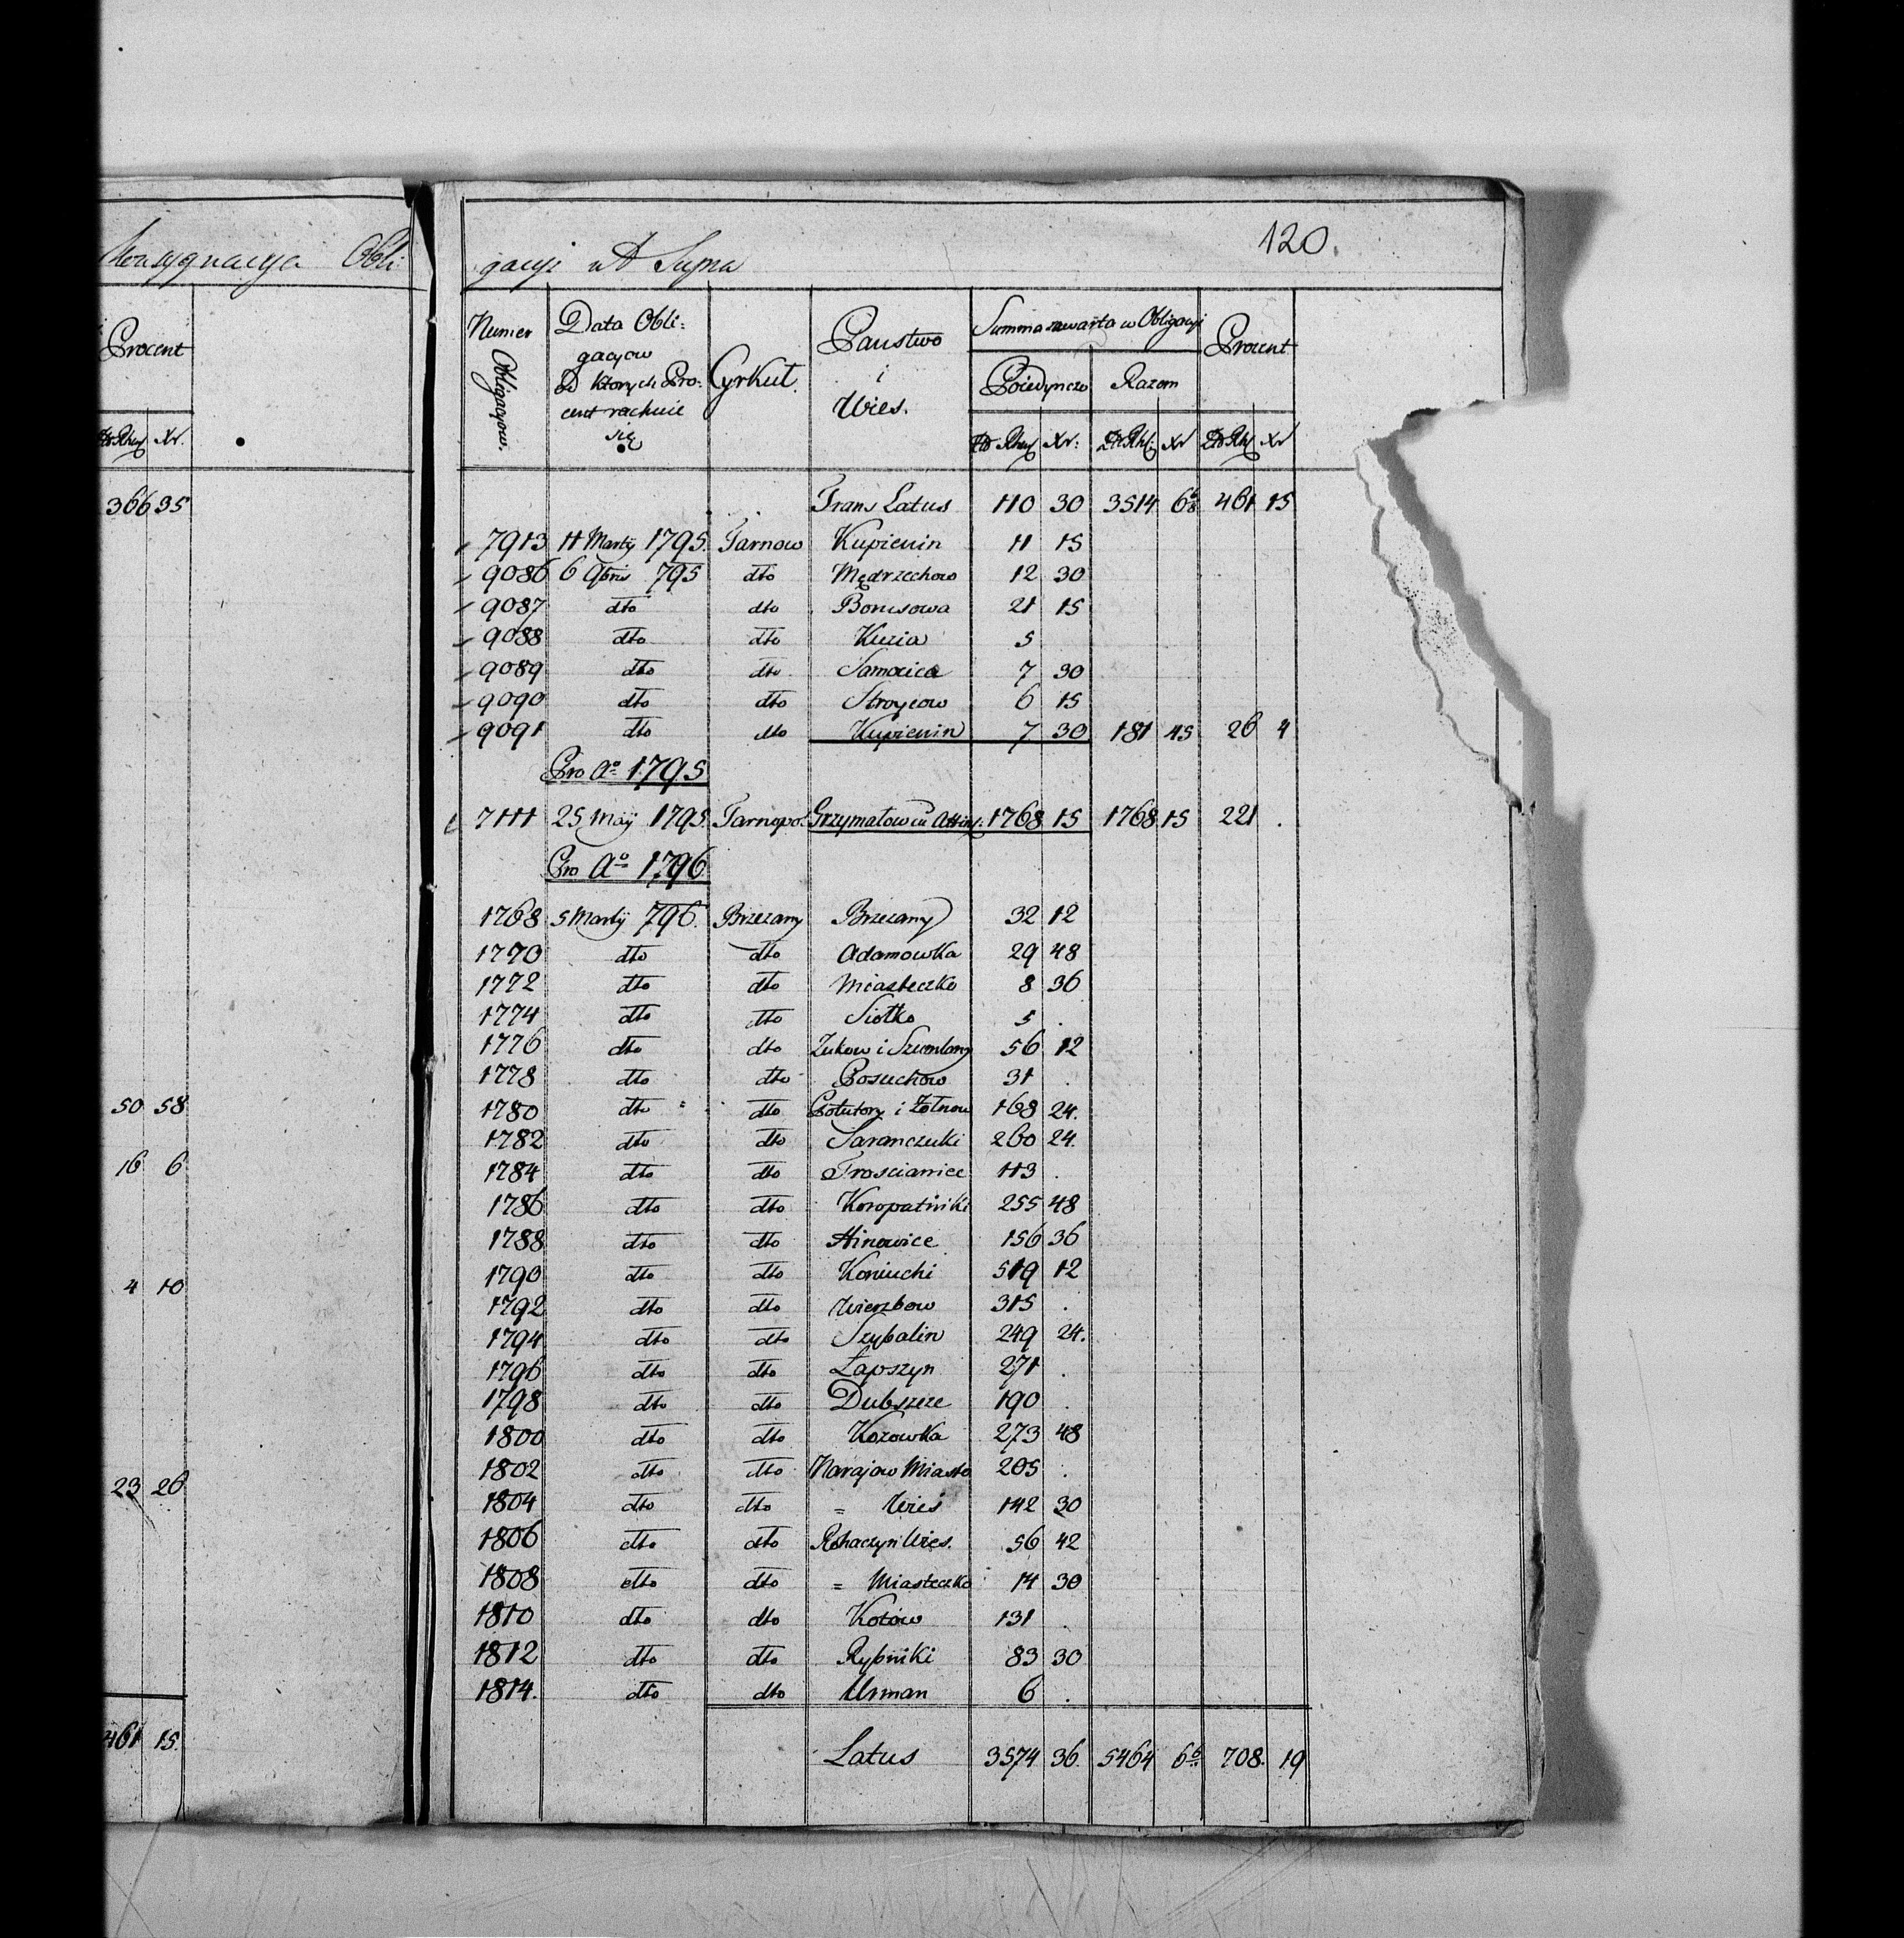 Konsygnacya Obli-
Procent
Zł Rhn Xr.
366 35
50 58
16 6
4 10
23 26
461 15.
120.
gacyi ut Supra
Numer Obligacyow. | Data Obli: gacyow od ktorych Pro: cent rachuie się | Cyrkuł. | Panstwo i Wies. | Summa zawarta w Obligacyi | Procent
Poiedynczo | Razem
Zł Rhn Xr: | Zł Rhn Xr | Zł Rhn Xr
Trans Latus 110 30 3514 6 6/8 461 15
7913 11 Martij 1795. Tarnow Kupienin 11 15
9086 6 9bris 795 dto Mędrzechow 12 30
9087 dto dto Borusowa 21 15
9088 dto dto Kuzia 5
9089 dto dto Samocice 7 30
9090 dto dto Stroycow 6 15
9091 dto dto Kupienin 7 30 181 45 26 4
Pro Ao 1795
7111 25 Maij 1795. Tarnopol Grzymałow cu Attin: 1768 15 1768 15 221 .
Pro Ao 1796
1768 5 Martij 796. Brzezany Brzezany 32 12
1770 dto dto Adamowka 29 48
1772 dto dto Miasteczko 8 36
1774 dto dto Siołko 5 .
1776 dto dto Zukow i Szumlany 56 12
1778 dto dto Posuchow 31 .
1780 dto dto Potutory i Żołnow 168 24.
1782 dto dto Saranczuki 260 24.
1784 dto dto Troscianiec 113 .
1786 dto dto Koropatniki 255 48
1788 dto dto Hinowice 156 36
1790 dto dto Koniuchi 519 12
1792 dto dto Wierzbow 315 .
1794 dto dto Szybalin 249 24.
1796 dto dto Łapszyn 271 .
1798 dto dto Dubszcze 190 .
1800 dto dto Kozowka 273 48
1802 dto dto Narajow Miasto 205 .
1804 dto dto = Wieś 142 30
1806 dto dto Rohaczyn Wies. 56 42
1808 dto dto = Miasteczko 14 30
1810 dto dto Kotów 131 .
1812 dto dto Rybniki 83 30
1814. dto dto Urman 6 .
Latus 3574 36. 5464 6 6/8 708. 19